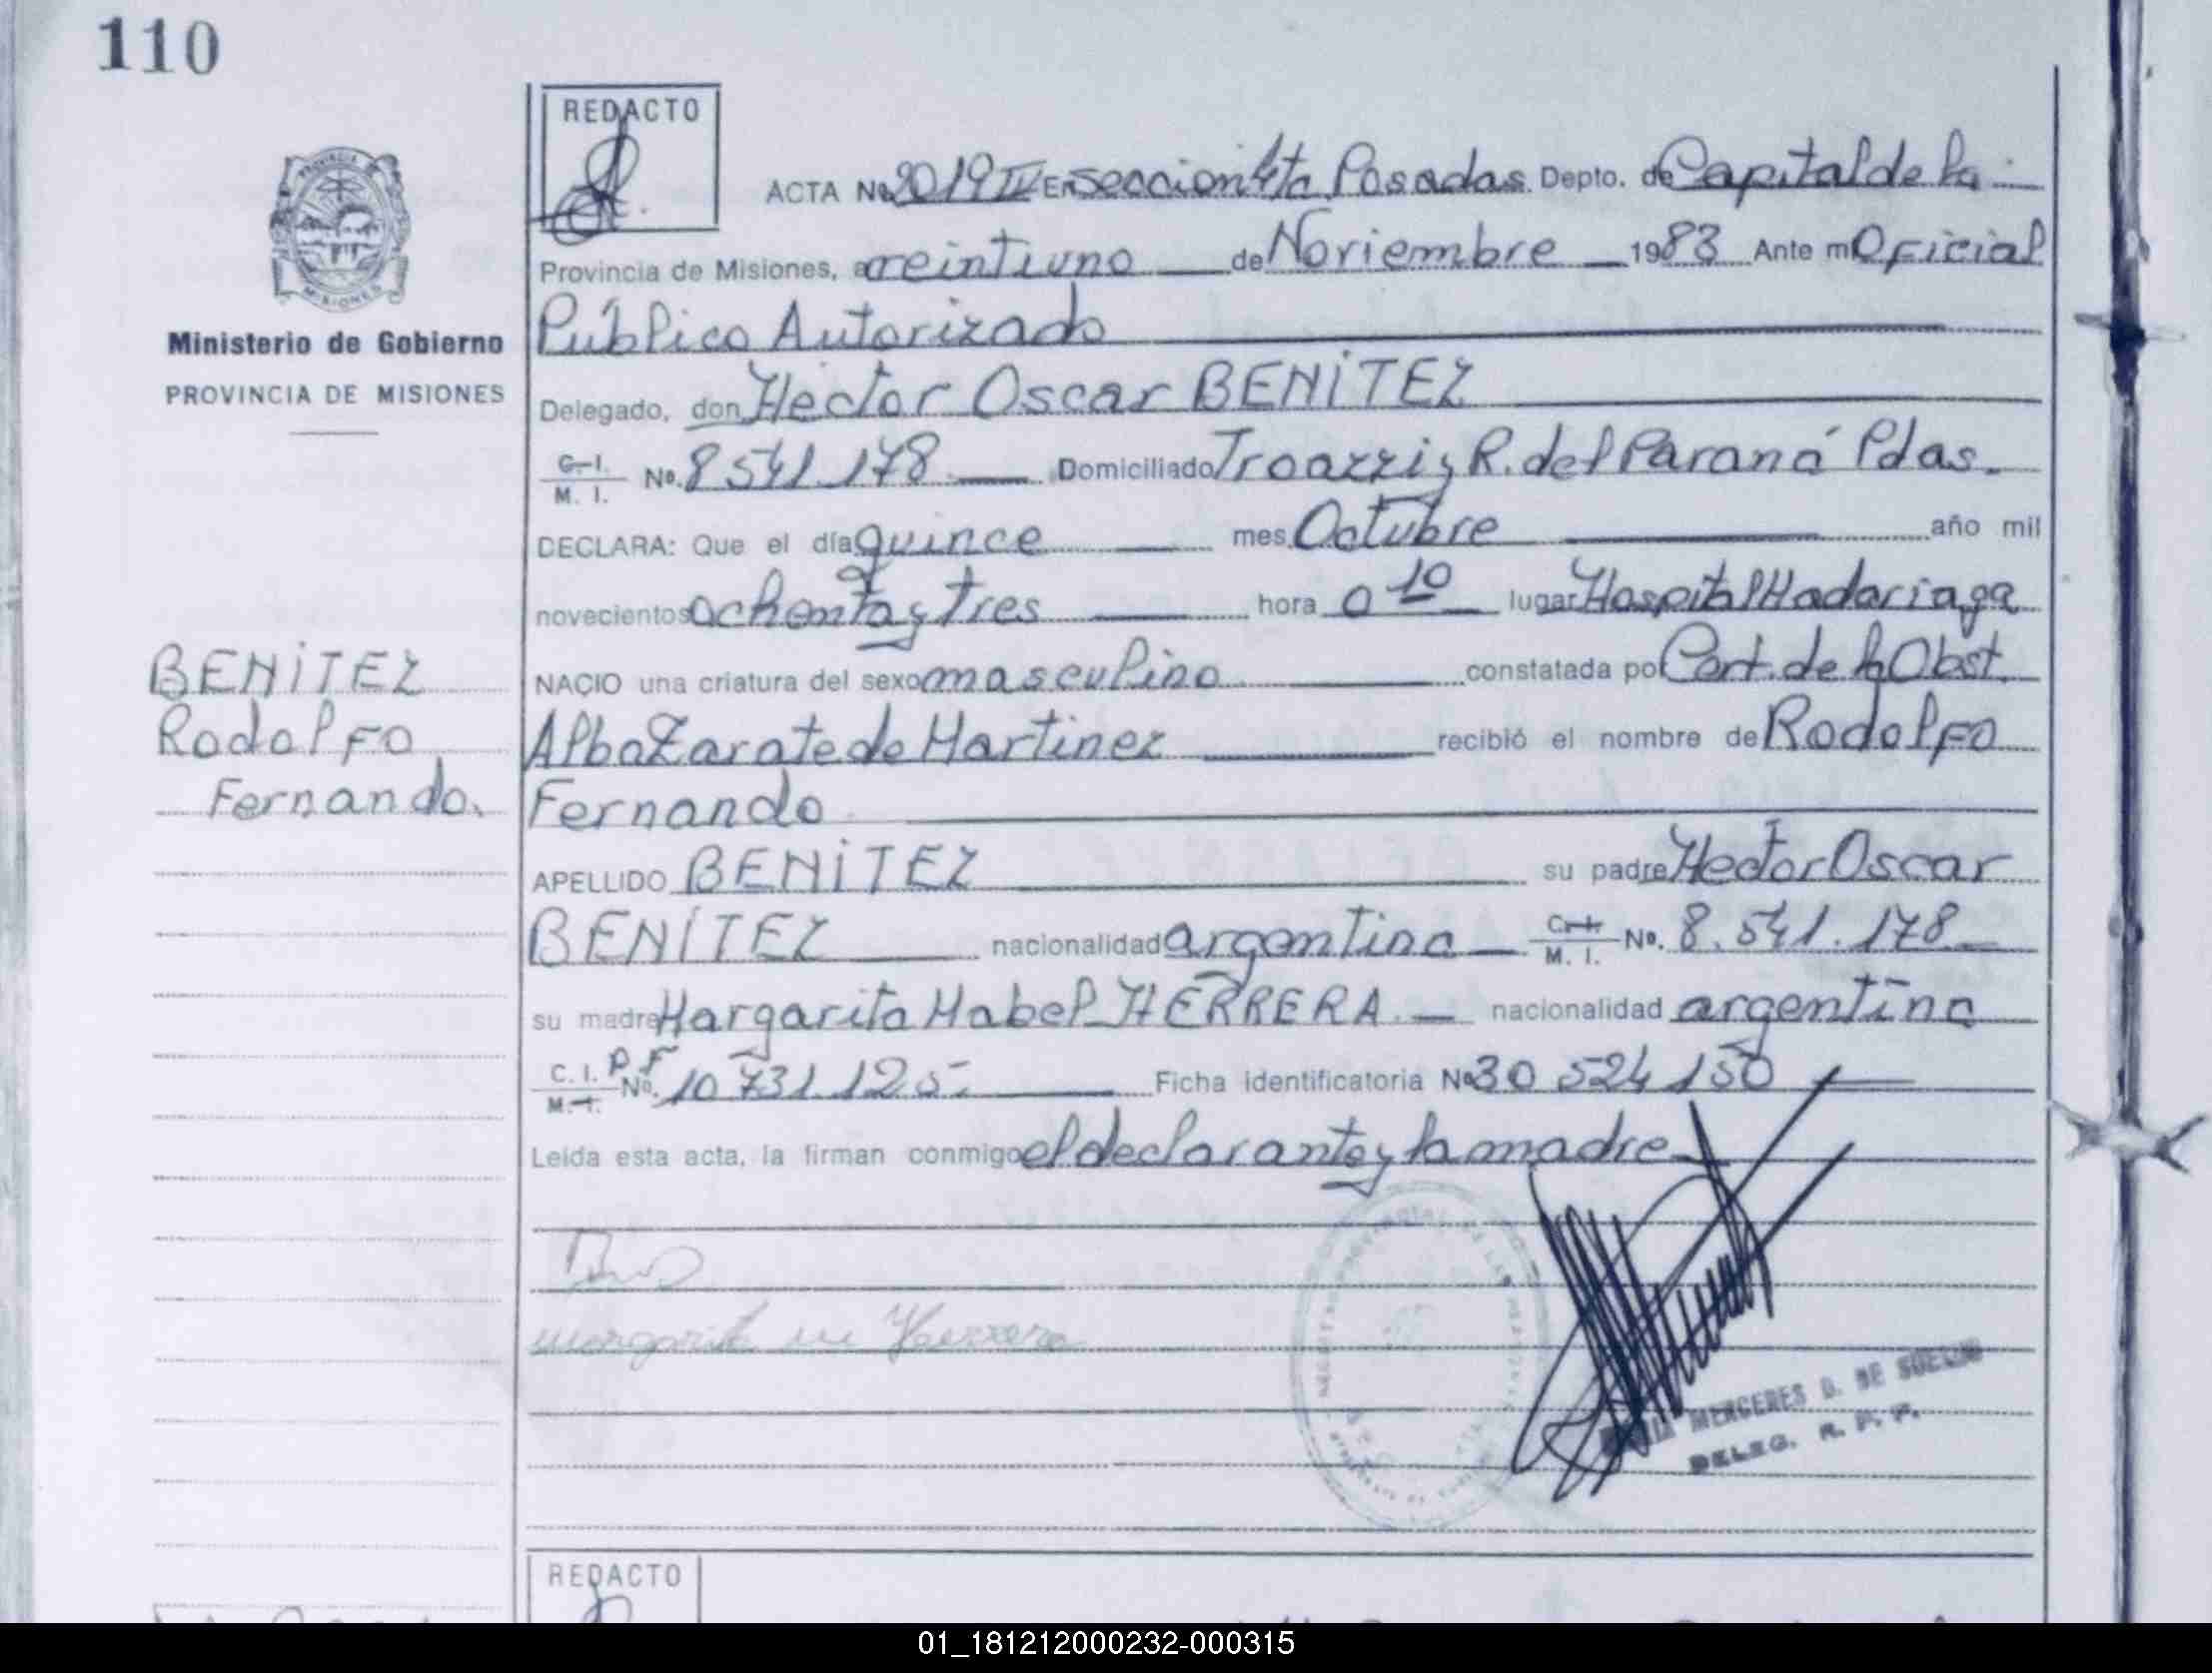 110
REDACTO
ACTA No. 2019 IV En seccion 4ta Posadas Depto. de Capital de la
Provincia de Misiones, a veintiuno de Noviembre 1983 Ante mi Oficial
Público Autorizado
PROVINCIA
MISIONES
Ministerio de Gobierno
PROVINCIA DE MISIONES
Delegado, don Hector Oscar BENITEZ
C. I.
M. I. No. 8 541.178 Domiciliado y R. del Paraná Pdas.
DECLARA: Que el día quince mes Octubre año mil
novecientos ochenta y tres hora 0 10 lugar Hospital Madariaga
NACIO una criatura del sexo masculino constatada por Cert. de la Obst.
Alba Zarate de Martinez recibió el nombre de Rodolfo
Fernando
BENITEZ
Rodolfo
Fernando.
APELLIDO BENITEZ su padre Hector Oscar
BENITEZ nacionalidad argentina C. I. M. I. No. 8.541.178
su madre Margarita Mabel HERRERA. nacionalidad argentina
C. I. P F
M. I. No. 10 731.125. Ficha identificatoria No 30 524 150
Leída esta acta, la firman conmigo el declarante y la madre
margarita m Herrera
MERCEDES D. DE
DELEG. R. P. P.
REDACTO
01_181212000232-000315